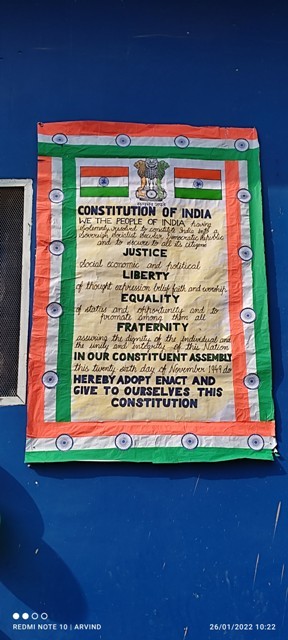 CONSTITUTION OF INDIA
WE THE PEOPLE OF INDIA, having
solemnly resolved to constitute India into a
Sovereign Socialist Secular Democratic Republic
and to secure to all its citizens
JUSTICE
Social economic and political
LIBERTY
of thought expression belief faith and worship
EQUALITY
of status and opportunity and to
promote among them all
FRATERNITY
assuring the dignity of the individual and
the unity and integrity of this Nation
IN OUR CONSTITUENT ASSEMBLY
this twenty sixth day of November 1949 do
HEREBY ADOPT ENACT AND
GIVE TO OURSELVES THIS
CONSTITUTION
REDMI NOTE 10 | ARVIND
26/01/2022 10:22